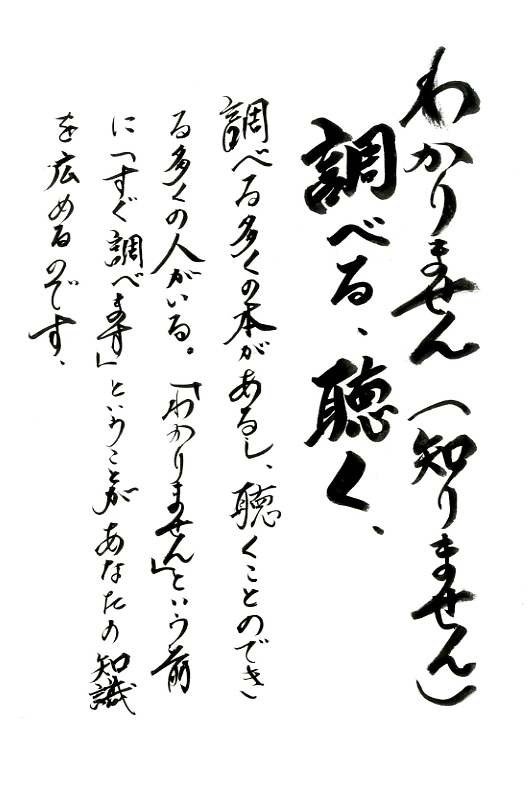 わかりません(知りません)
調べる、聴く、
調べる多くの本があるし、聴くことのでき
る多くの人がいる。「わかりません」という前
に「すぐ調べます」ということがあなたの知識
を広めるのです、